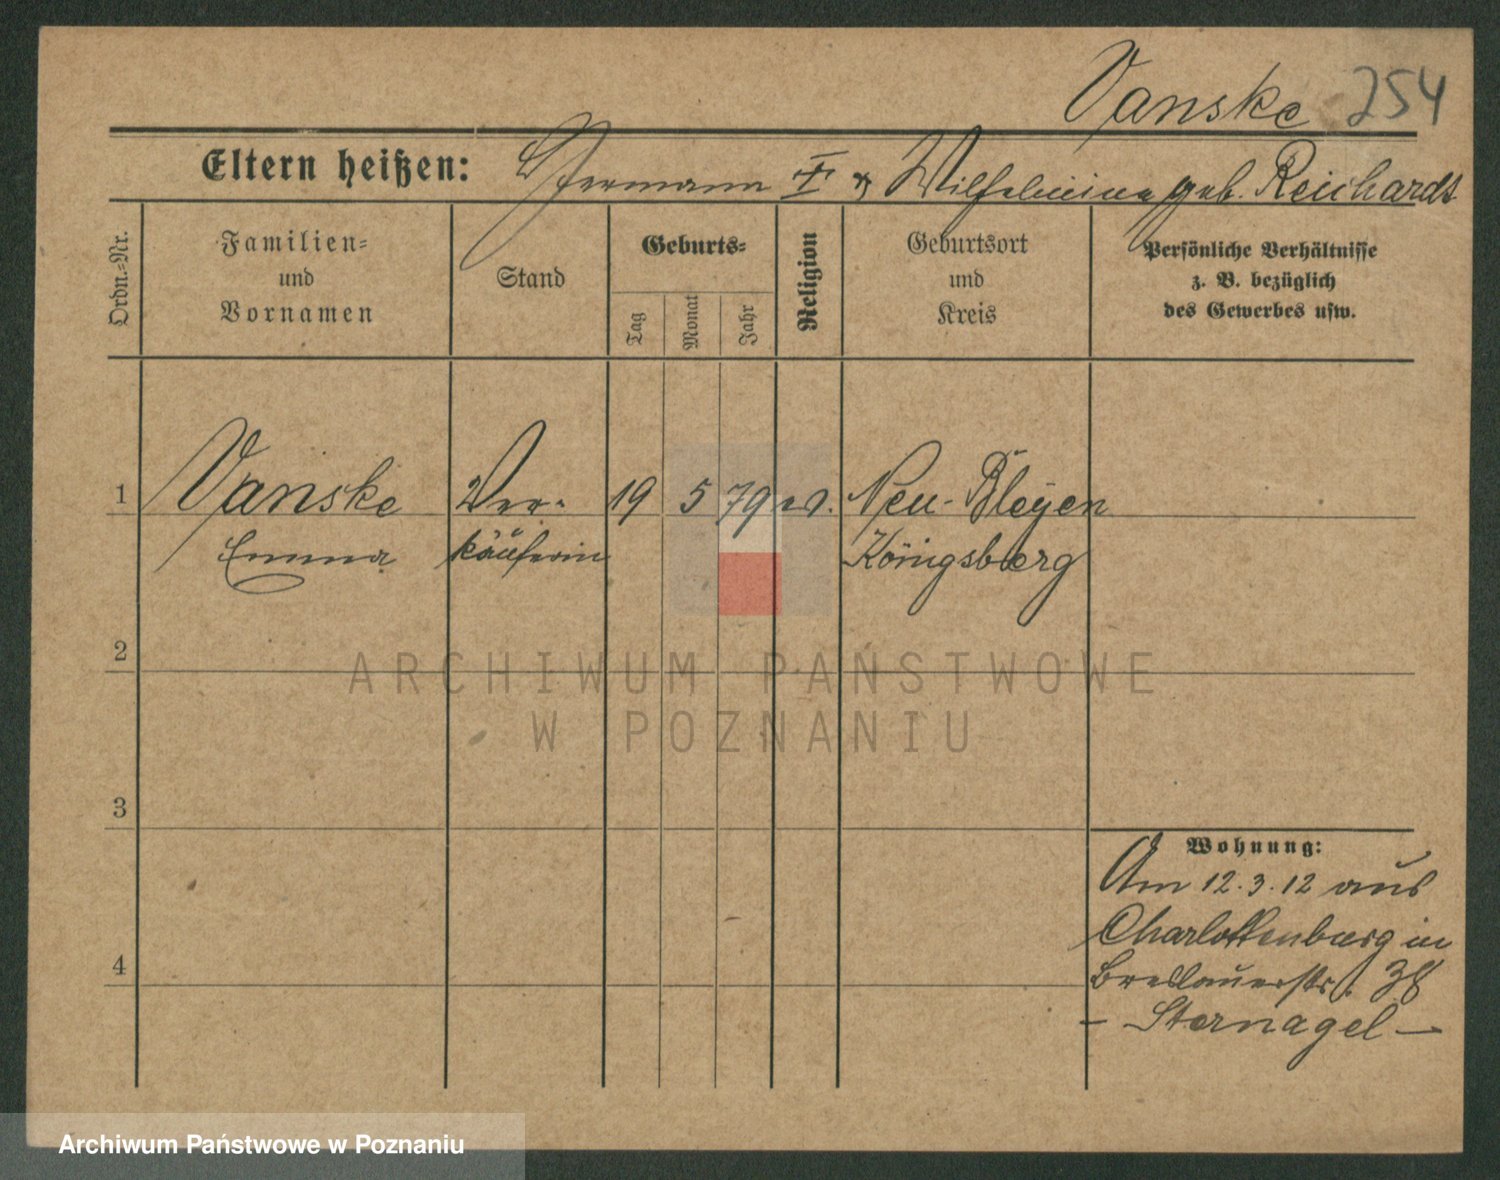 Vanske 254
Eltern heißen: Hermann † & Wilhelmine geb. Reichardt
Ordn.=Nr.
Familien=
und
Vornamen
Stand
Geburts=
Tag
Monat
Jahr
Religion
Geburtsort
und
Kreis
Persönliche Verhältnisse
z. B. bezüglich
des Gewerbes usw.
1 Vanske Ver- 19 5 79 ev. Neu-Bleyen
Emma käuferin Königsberg
2
ARCHIWUM PAŃSTWOWE
W POZNANIU
3
Wohnung:
Am 12.3.12 aus
Charlottenburg in
4
Breslauerstr. 38
- Sternagel -
Archiwum Państwowe w Poznaniu